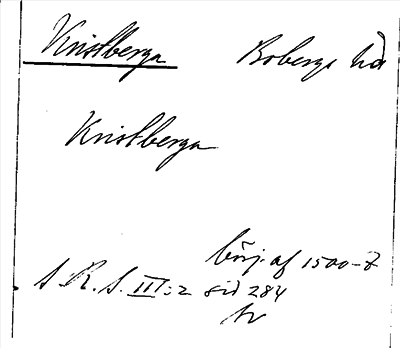 Kristberga Bobergs hd
Kristberga
börj. af 1500-t
S. R. S. III:2 sid 284